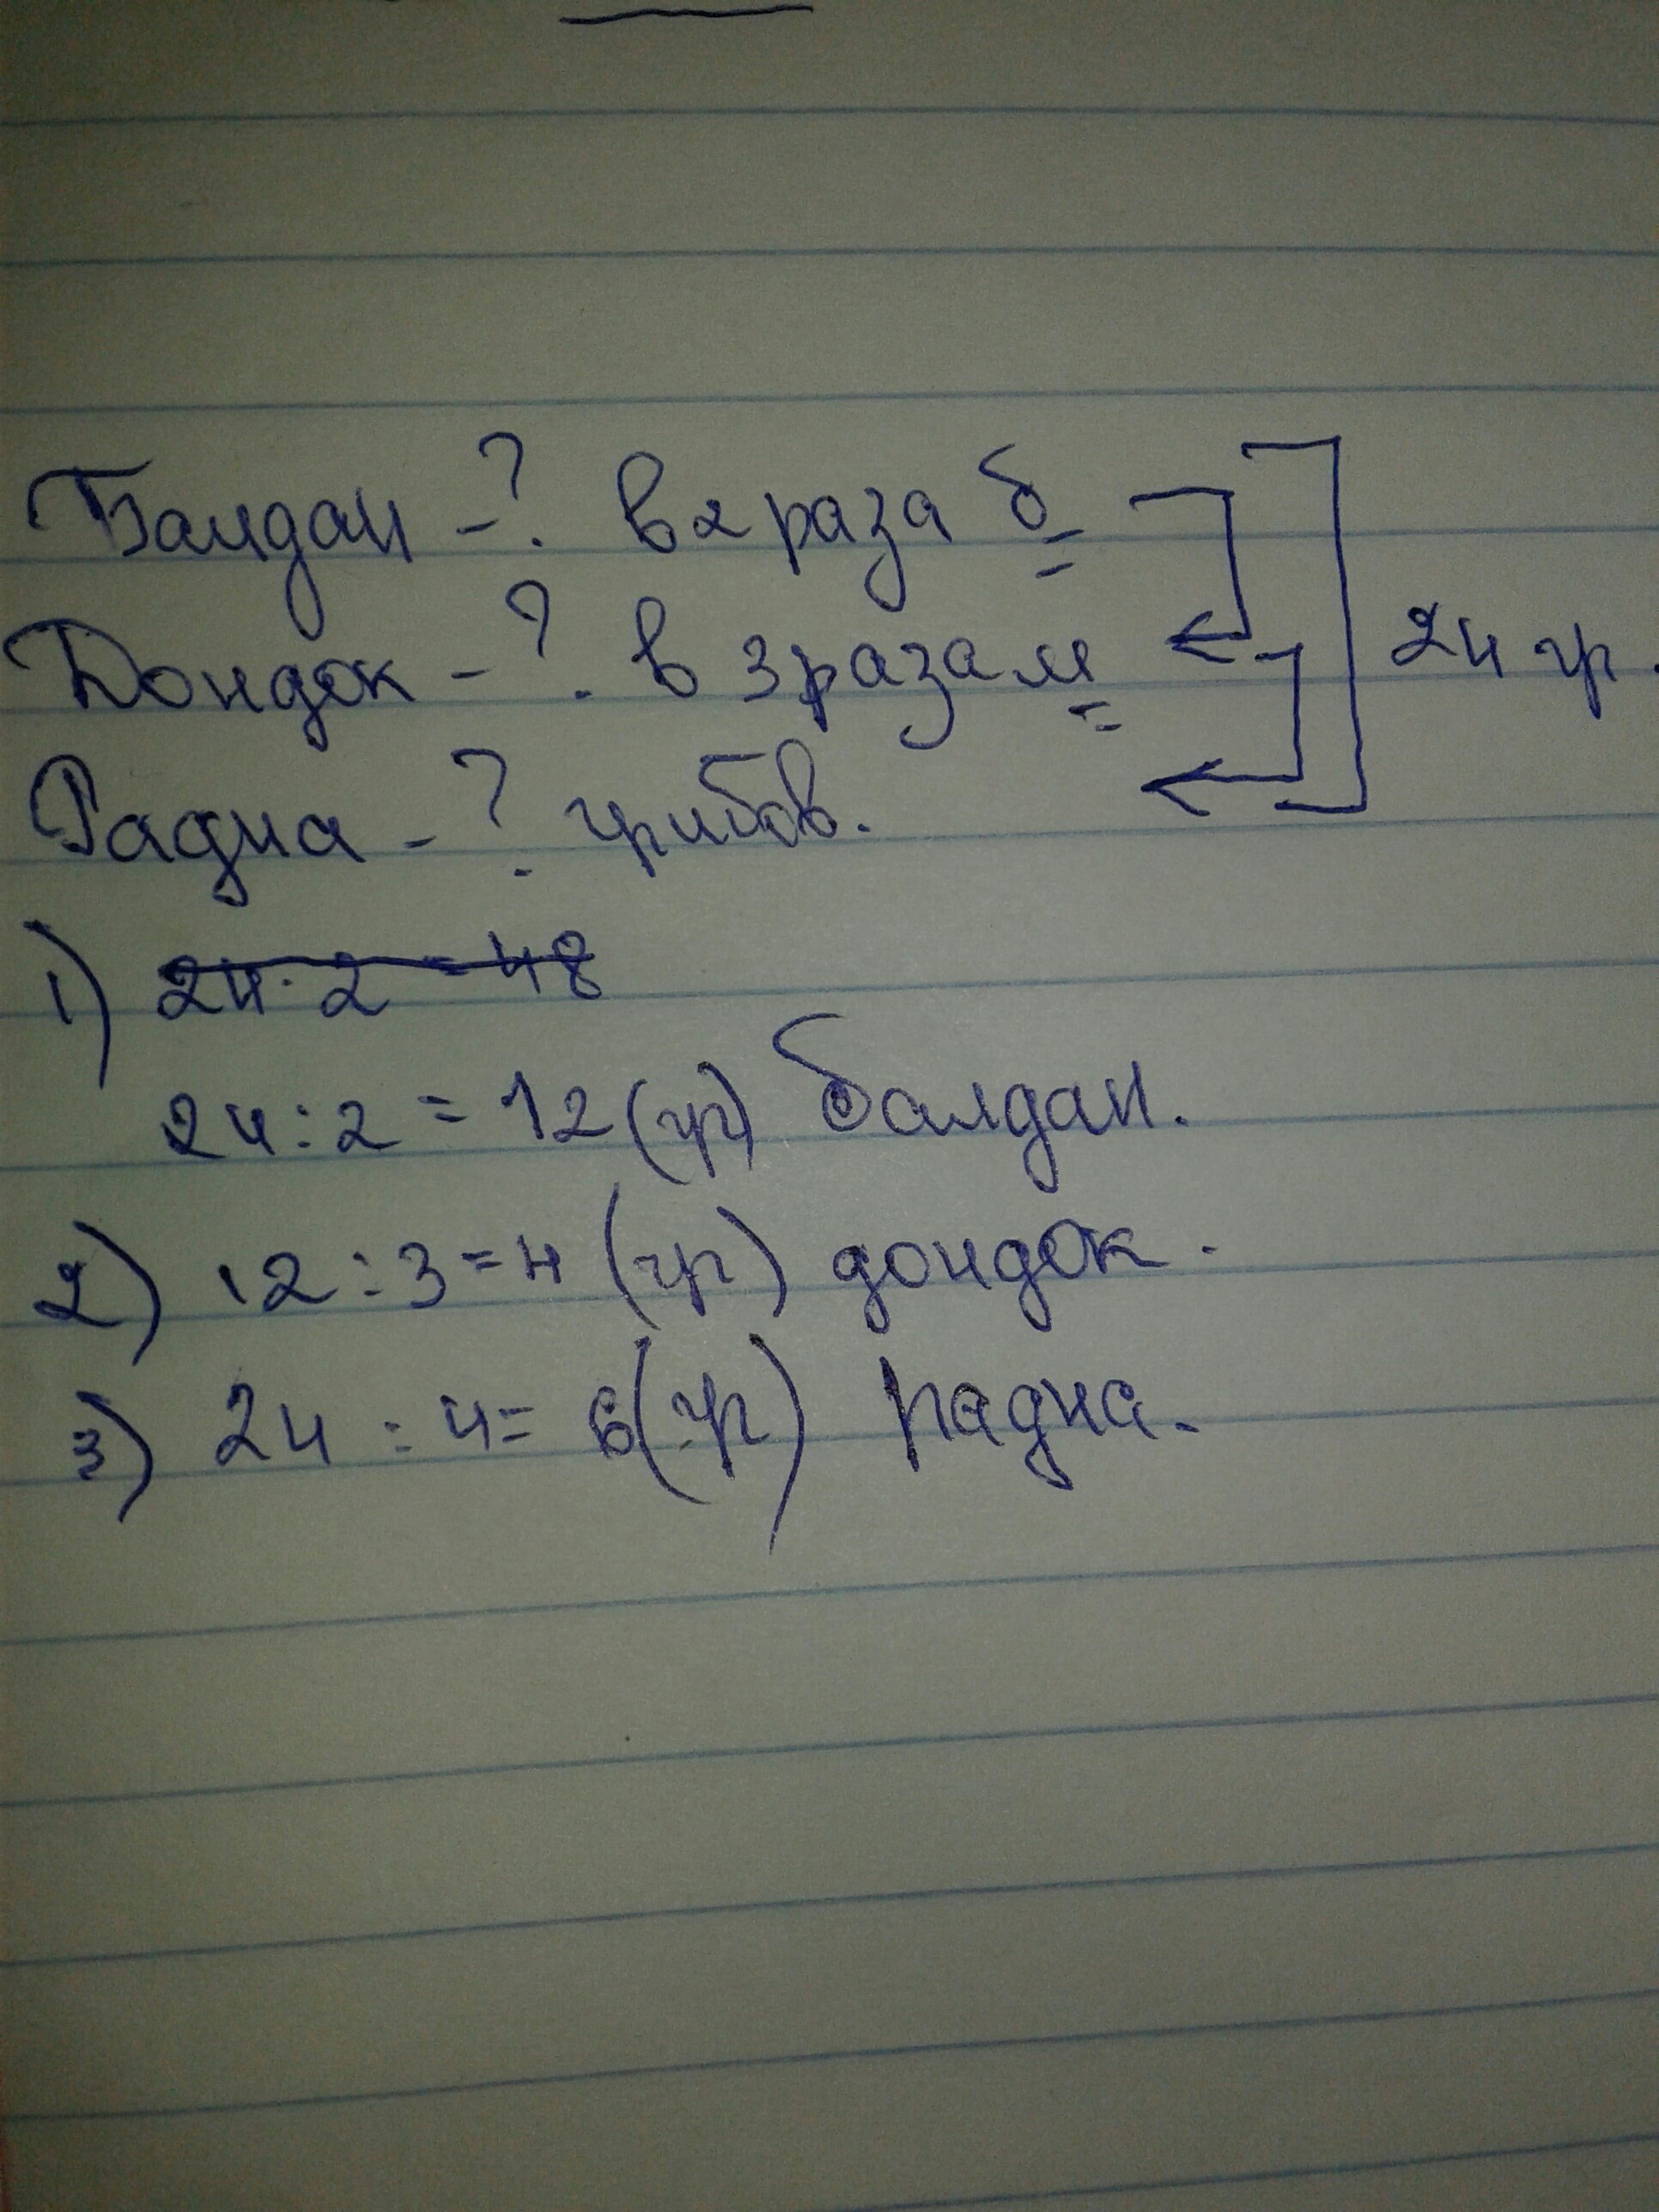 Балдан - ? в 2 раза б
Дондок - ? в 3 раза м
24 гр.
Радна - ? грибов.
1) 24 · 2 = 48
24 : 2 = 12 (гр) балдан.
2) 12 : 3 = 4 (гр) дондок.
3) 24 : 4 = 6 (гр) радна.